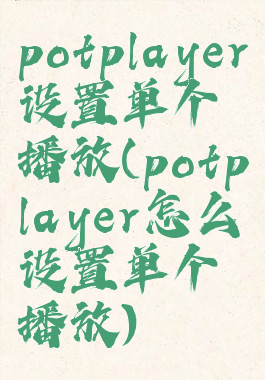 potplayer
设置单个
播放(potp
layer怎么
设置单个
播放)